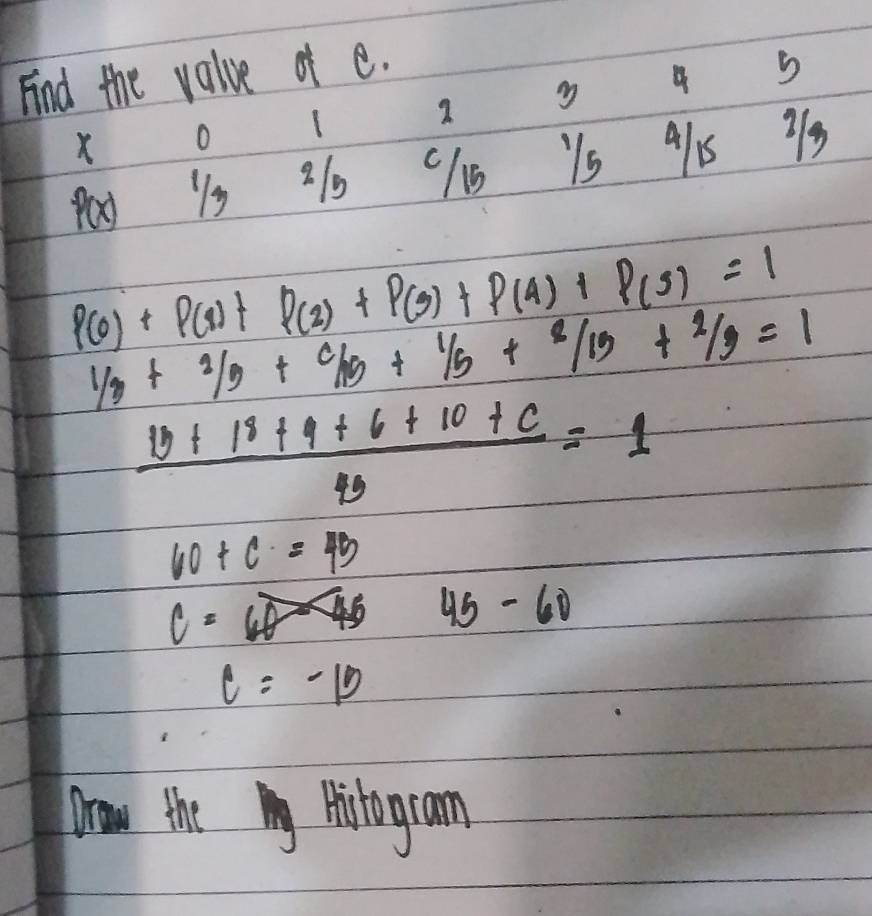 Find the value of c.
x 0 1 2 3 4 5
P(x) 1/3 2/5 c/15 1/5 4/15 2/9
P(0) + P(1) + P(2) + P(3) + P(4) + P(5) = 1
1/3 + 2/5 + c/15 + 1/5 + 2/15 + 2/9 = 1
15 + 18 + 9 + 6 + 10 + C = 1
45
60 + C = 45
C = 60 - 45 45 - 60
C = -15
Draw the Histogram